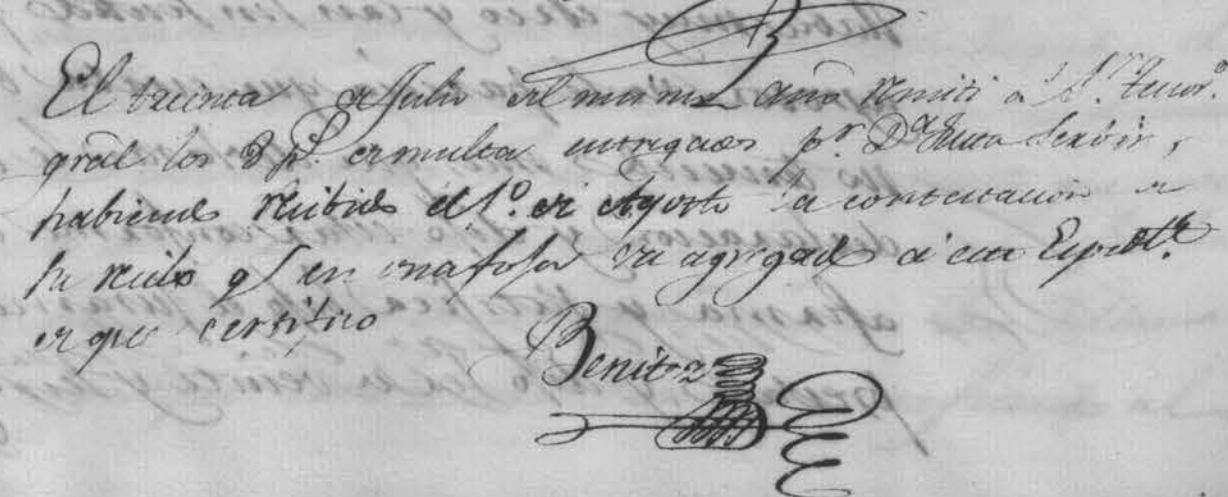 El treinta de Julio del mismo año remiti al Sr. Tesor.o
gral los 8 p.s de multa entregados p.r D.a Servin,
habiendo recibido el 1.o de Agosto la contestacion de
su recibo q.e en una foja va agregado á este Exped.te
de que certifico
Benitez